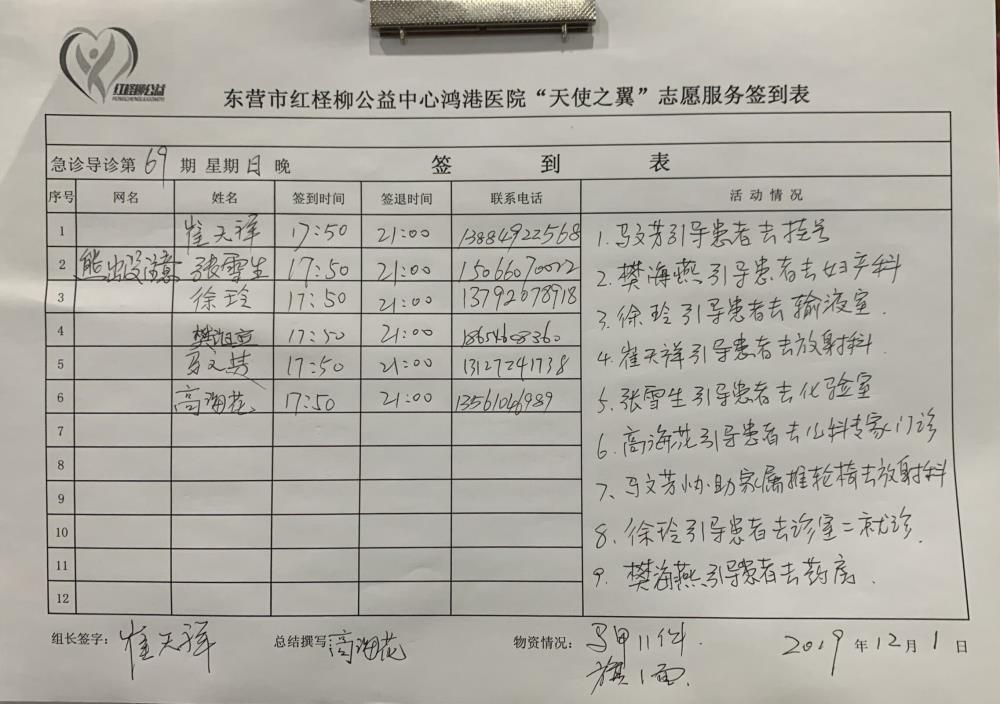 红柽柳公益
HONGCHENGLIUGONGYI
东营市红柽柳公益中心鸿港医院“天使之翼”志愿服务签到表
急诊导诊第 69 期 星期 日 晚 签 到 表
序号 网名 姓名 签到时间 签退时间 联系电话 活 动 情 况
1 崔天祥 17:50 21:00 13884922568
2 熊出没注意 张雪生 17:50 21:00 15066070022
3 徐玲 17:50 21:00 13792078918
4 17:50 21:00 18654608360
5 马文芳 17:50 21:00 13127241738
6 高海花 17:50 21:00 13561046989
7
8
9
10
11
12
1. 马文芳引导患者去挂号
2. 樊海燕引导患者去妇产科
3. 徐玲引导患者去输液室.
4. 崔天祥引导患者去放射科.
5. 张雪生引导患者去化验室
6. 高海花引导患者去儿科专家门诊
7、马文芳协助家属推轮椅去放射科
8. 徐玲引导患者去诊室二就诊.
9. 樊海燕引导患者去药房.
组长签字: 崔天祥 总结撰写 高海花 物资情况: 马甲11件.
旗1面.
2019 年 12 月 1 日